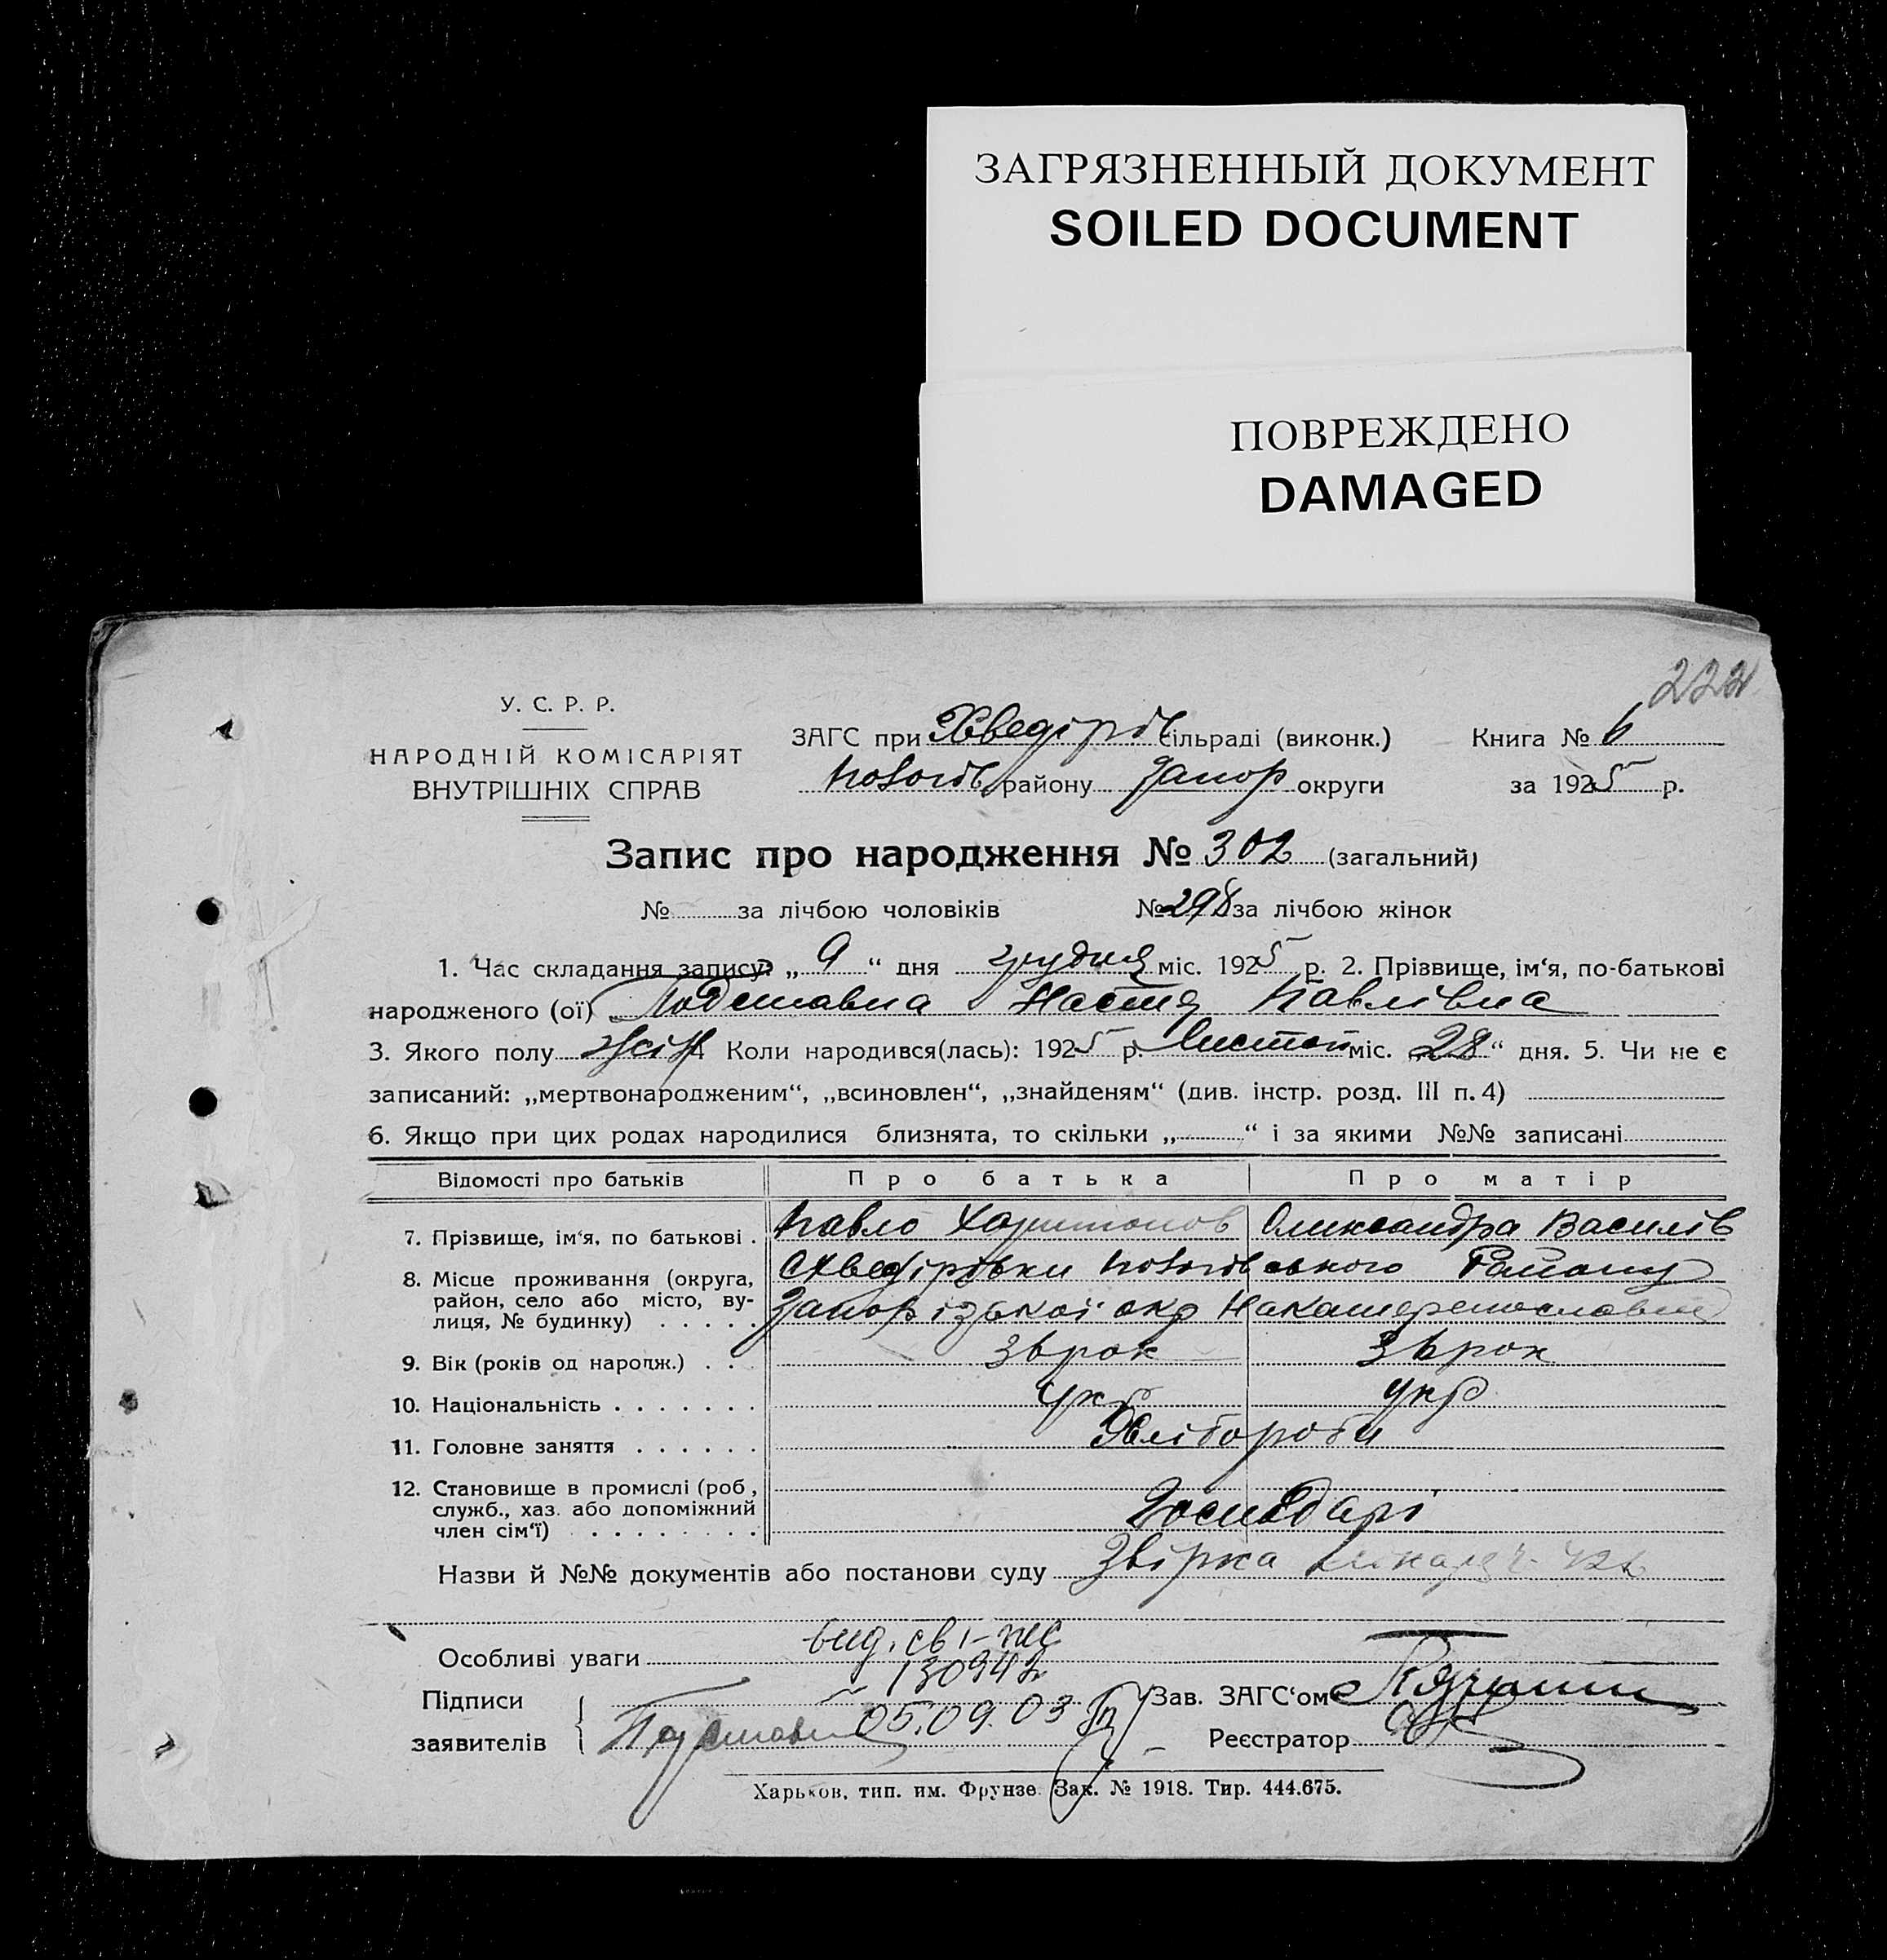 ЗАГРЯЗНЕННЫЙ ДОКУМЕНТ
SOILED DOCUMENT
ПОВРЕЖДЕНО
DAMAGED
222
У. С. Р. Р.
НАРОДНІЙ КОМІСАРІЯТ
ВНУТРІШНІХ СПРАВ
ЗАГС при Хведірів сільраді (виконк.) Книга № 6
Новогів району Запор округи за 1925 р.
Запис про народження № 302 (загальний)
№ за лічбою чоловіків № 298 за лічбою жінок
1. Час складання запису: „ 9 “ дня грудня міс. 1925 р. 2. Прізвище, ім‘я, по-батькові
народженого (ої) Настя Павлівна
3. Якого полу жін 4. Коли народився(лась): 1925 р. Листоп міс. „ 28 “ дня. 5. Чи не є
записаний: „мертвонародженим“, „всиновлен“, „знайденям“ (див. інстр. розд. III п. 4)
6. Якщо при цих родах народилися близнята, то скільки „ “ і за якими №№ записані
Відомості про батьків Про батька Про матір
7. Прізвище, ім‘я, по батькові . Павло Харитонов Олександра Василів
8. Місце проживання (округа, район, село або місто, вулиця, № будинку) . . . . Хведірівки Новогівського Району
Запорізької окр
9. Вік (років од народж.) . . . рок рок
10. Національність . . . . . . . укр укр
11. Головне заняття . . . . . . Хлібороби
12. Становище в промислі (роб., служб., хаз. або допоміжний член сім‘ї) . . . . . . . . Господарі
Назви й №№ документів або постанови суду Звірка
Особливі уваги вид. св
130942
Підписи
заявителів 05.09.03
Зав. ЗАГС‘ом
Реєстратор
Харьков, тип. им. Фрунзе. Зак. № 1918. Тир. 444.675.